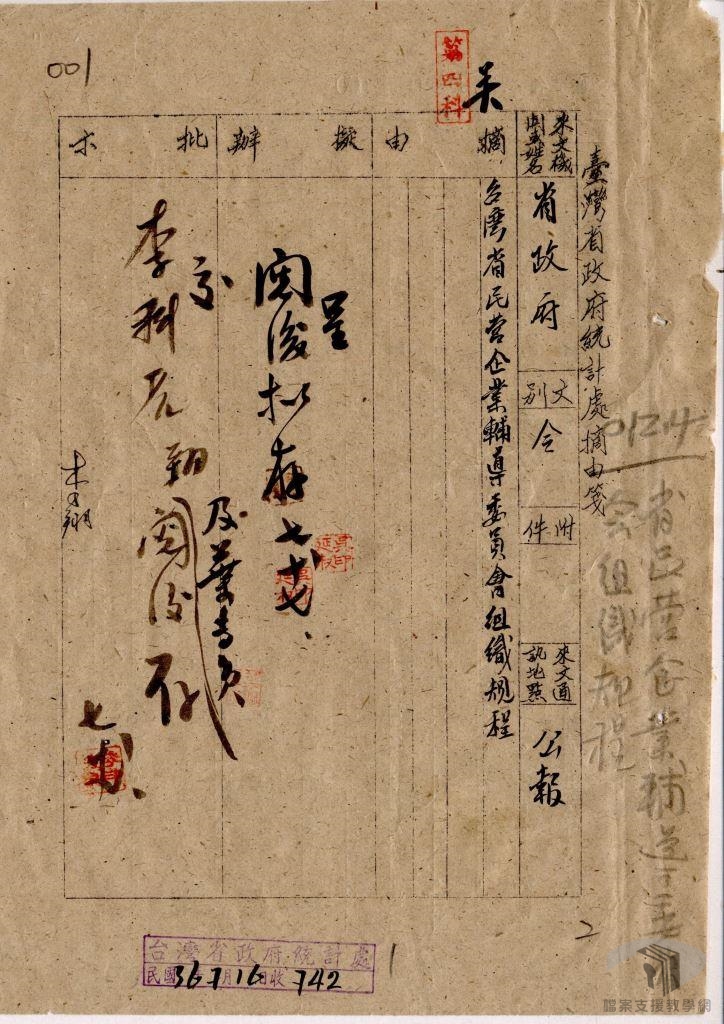 001
第四科
臺灣省政府統計處摘由箋
0124
省民營企業輔導委
會組織規程
來文機關或姓名
省政府
文別
令
附件
來文通訊地點
公報
摘由
台灣省民營企業輔導委員會組織規程
擬辦
呈
閱後擬存
批示
交
李科長
及葉專員
閱後存
台灣省政府統計處
民國36 7月16日收 742
1
2
檔案支援教學網